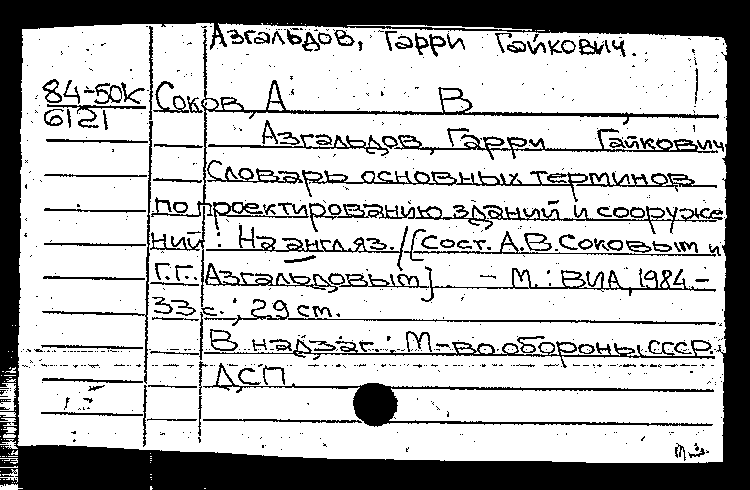 Азгальдов, Гарри Гайкович.
84-50К Соков, А В
6121
Азгальдов, Гарри Гайкович
Словарь основных терминов
по проектированию зданий и сооруже
ний : На англ. яз. / [Сост. А.В. Соковым и
Г.Г. Азгальдовым]. – М. : ВИА, 1984 –
33 с. ; 29 см.
В надзаг. : М-во обороны СССР.
ДСП.